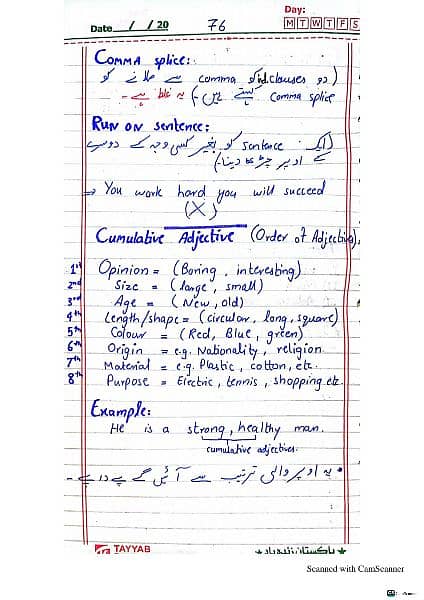 Date / / 20
76
Day:
M T W T F S
COMMA splice:
(دو id.clauses کو comma سے ملانے کو
comma splice کہتے ہیں) یہ غلط ہے۔
RUN ON sentence:
(ایک sentence کو بغیر کسی وجہ کے دوسرے
کے اوپر چڑھا دینا۔)
→ You work hard you will succeed
(X)
Cumulative Adjective (Order of Adjective)
1st Opinion = (Boring, interesting)
2nd Size = (large, small)
3rd Age = (New, old)
4th Length/shape = (circular, long, square)
5th Colour = (Red, Blue, green)
6th Origin = e.g. Nationality, religion.
7th Material = e.g. Plastic, cotton, etc.
8th Purpose = Electric, tennis, shopping.etc.
Example:
He is a strong, healthy man.
cumulative adjectives.
• یہ اوپر والی ترتیب سے آئیں گے
TAYYAB
پاکستان زندہ باد
Scanned with CamScanner